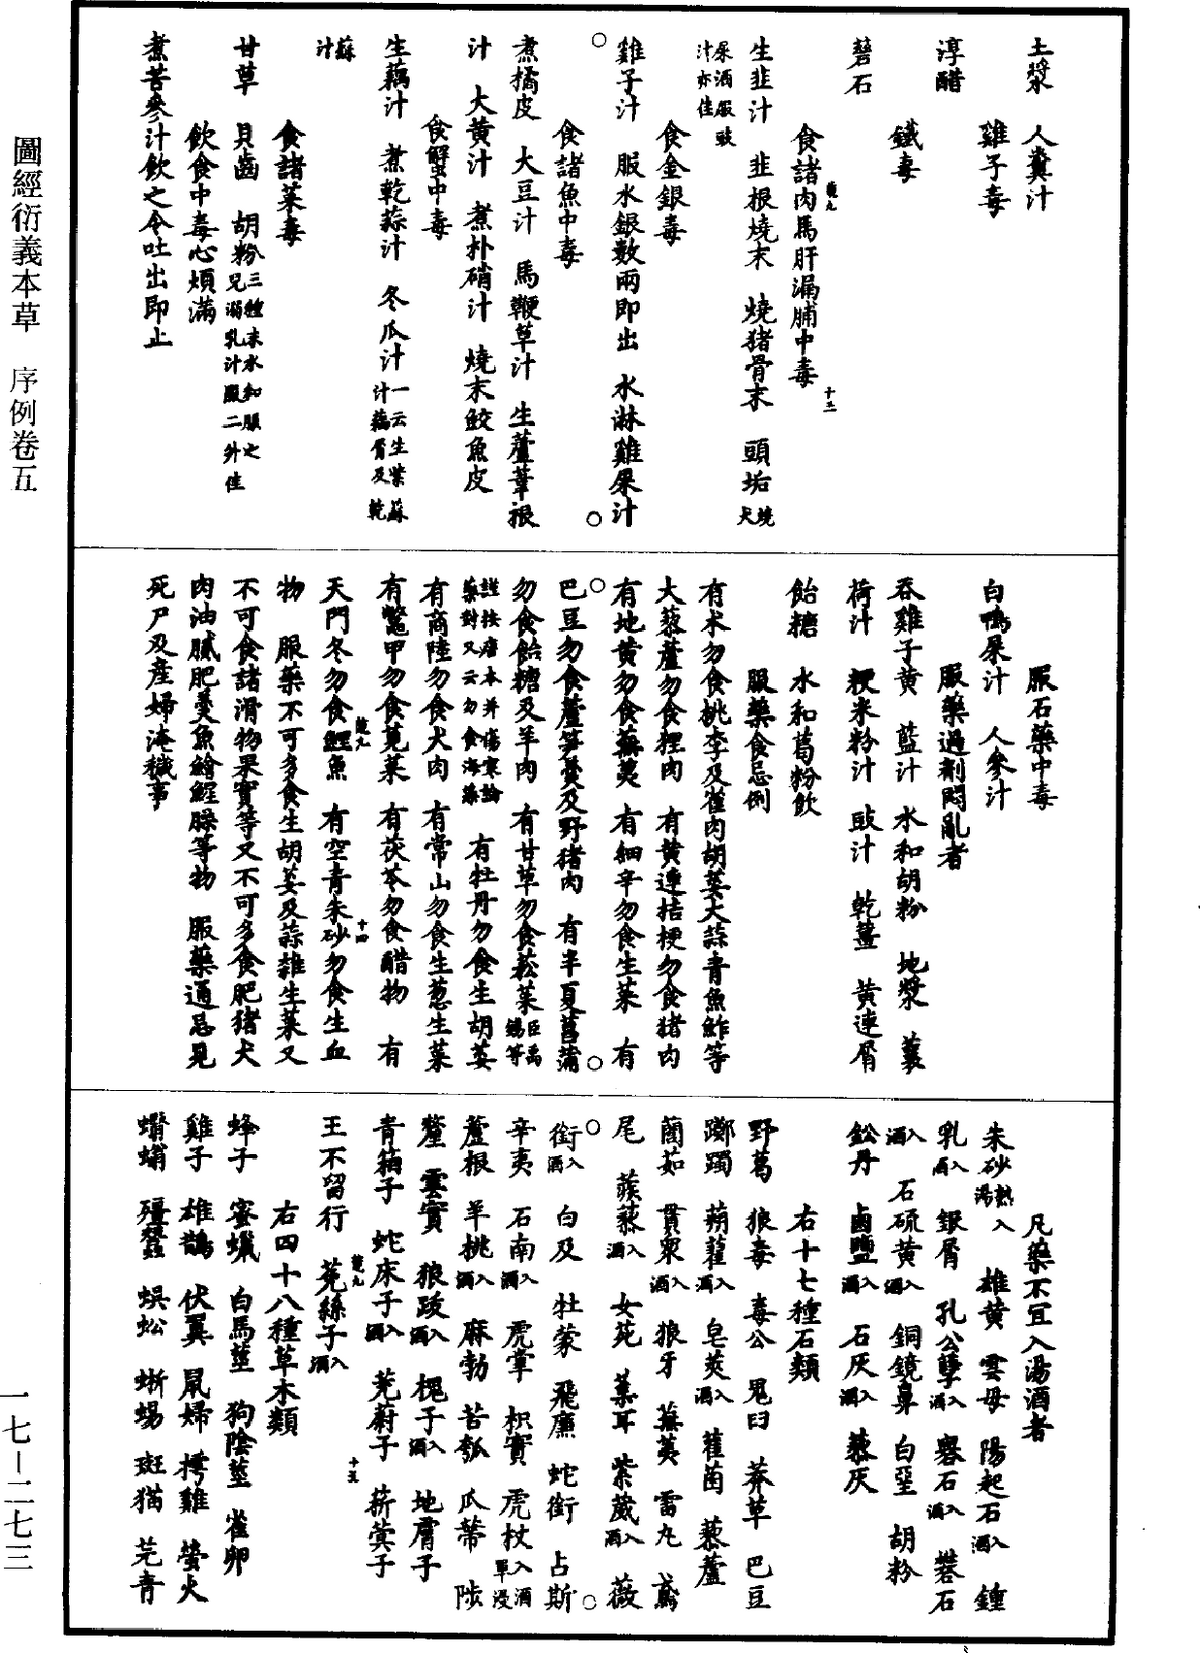 圖經衍義本草　序例卷五
一七—二七三
土漿　人糞汁
雞子毒
淳醋
鐵毒
磁石
食諸肉馬肝漏脯中毒
生韭汁　韭根燒末　燒猪骨末　頭垢燒犬
屎酒服豉汁亦佳
食金銀毒
雞子汁　服水銀數兩即出　水淋雞屎汁
食諸魚中毒
煮橘皮　大豆汁　馬鞭草汁　生蘆葦根
汁　大黃汁　煮朴硝汁　燒末鮫魚皮
食蟹中毒
生藕汁　煮乾蒜汁　冬瓜汁一云生紫蘇汁藕屑及乾
蘇汁
食諸菜毒
甘草　貝齒　胡粉三種末水和服之兒溺乳汁服二升佳
飲食中毒心煩滿
煮苦參汁飲之令吐出即止
服石藥中毒
白鴨屎汁　人參汁
服藥過劑悶亂者
吞雞子黃　藍汁　水和胡粉　地漿　蘘
荷汁　粳米粉汁　豉汁　乾薑　黃連屑
飴糖　水和葛粉飲
服藥食忌例
有朮勿食桃李及雀肉胡荽大蒜青魚鮓等
大藜蘆勿食狸肉　有黃連桔梗勿食猪肉
有地黃勿食蕪荑　有細辛勿食生菜　有
巴豆勿食蘆笋羹及野猪肉　有半夏菖蒲
勿食飴糖及羊肉　有甘草勿食菘菜臣禹錫等
謹按唐本并傷寒論藥對又云勿食海藻　有牡丹勿食生胡荽
有商陸勿食犬肉　有常山勿食生葱生菜
有鱉甲勿食莧菜　有茯苓勿食醋物　有
天門冬勿食鯉魚　有空青朱砂勿食生血
物　服藥不可多食生胡荽及蒜雜生菜又
不可食諸滑物果實等又不可多食肥猪犬
肉油膩肥羹魚鱠腥臊等物　服藥通忌見
死尸及產婦淹穢事
凡藥不宜入湯酒者
朱砂熱入湯　雄黃　雲母　陽起石入酒　鍾
乳入酒　銀屑　孔公孽入酒　礜石入酒　礬石
入酒　石硫黃入酒　銅鏡鼻　白堊　胡粉
鈆丹　鹵鹽入酒　石灰入酒　藜灰
右十七種石類
野葛　狼毒　毒公　鬼臼　莽草　巴豆
躑躅　蒴藋入酒　皂莢入酒　雚菌　藜蘆
藺茹　貫眾入酒　狼牙　蕪荑　雷丸　鳶
尾　蒺藜入酒　女菀　葈耳　紫葳入酒　薇
銜入酒　白及　牡蒙　飛廉　蛇銜　占斯
辛夷　石南入酒　虎掌　枳實　虎杖入酒單浸
蘆根　羊桃入酒　麻勃　苦瓠　瓜蒂　陟
釐　雲實　狼跋入酒　槐子入酒　地膚子
青葙子　蛇床子入酒　茺蔚子　菥蓂子
王不留行　菟絲子入酒
右四十八種草木類
蜂子　蜜蠟　白馬莖　狗陰莖　雀卵
雞子　雄鵲　伏翼　鼠婦　摴雞　螢火
蠮螉　殭蠶　蜈蚣　蜥蜴　斑猫　芫青